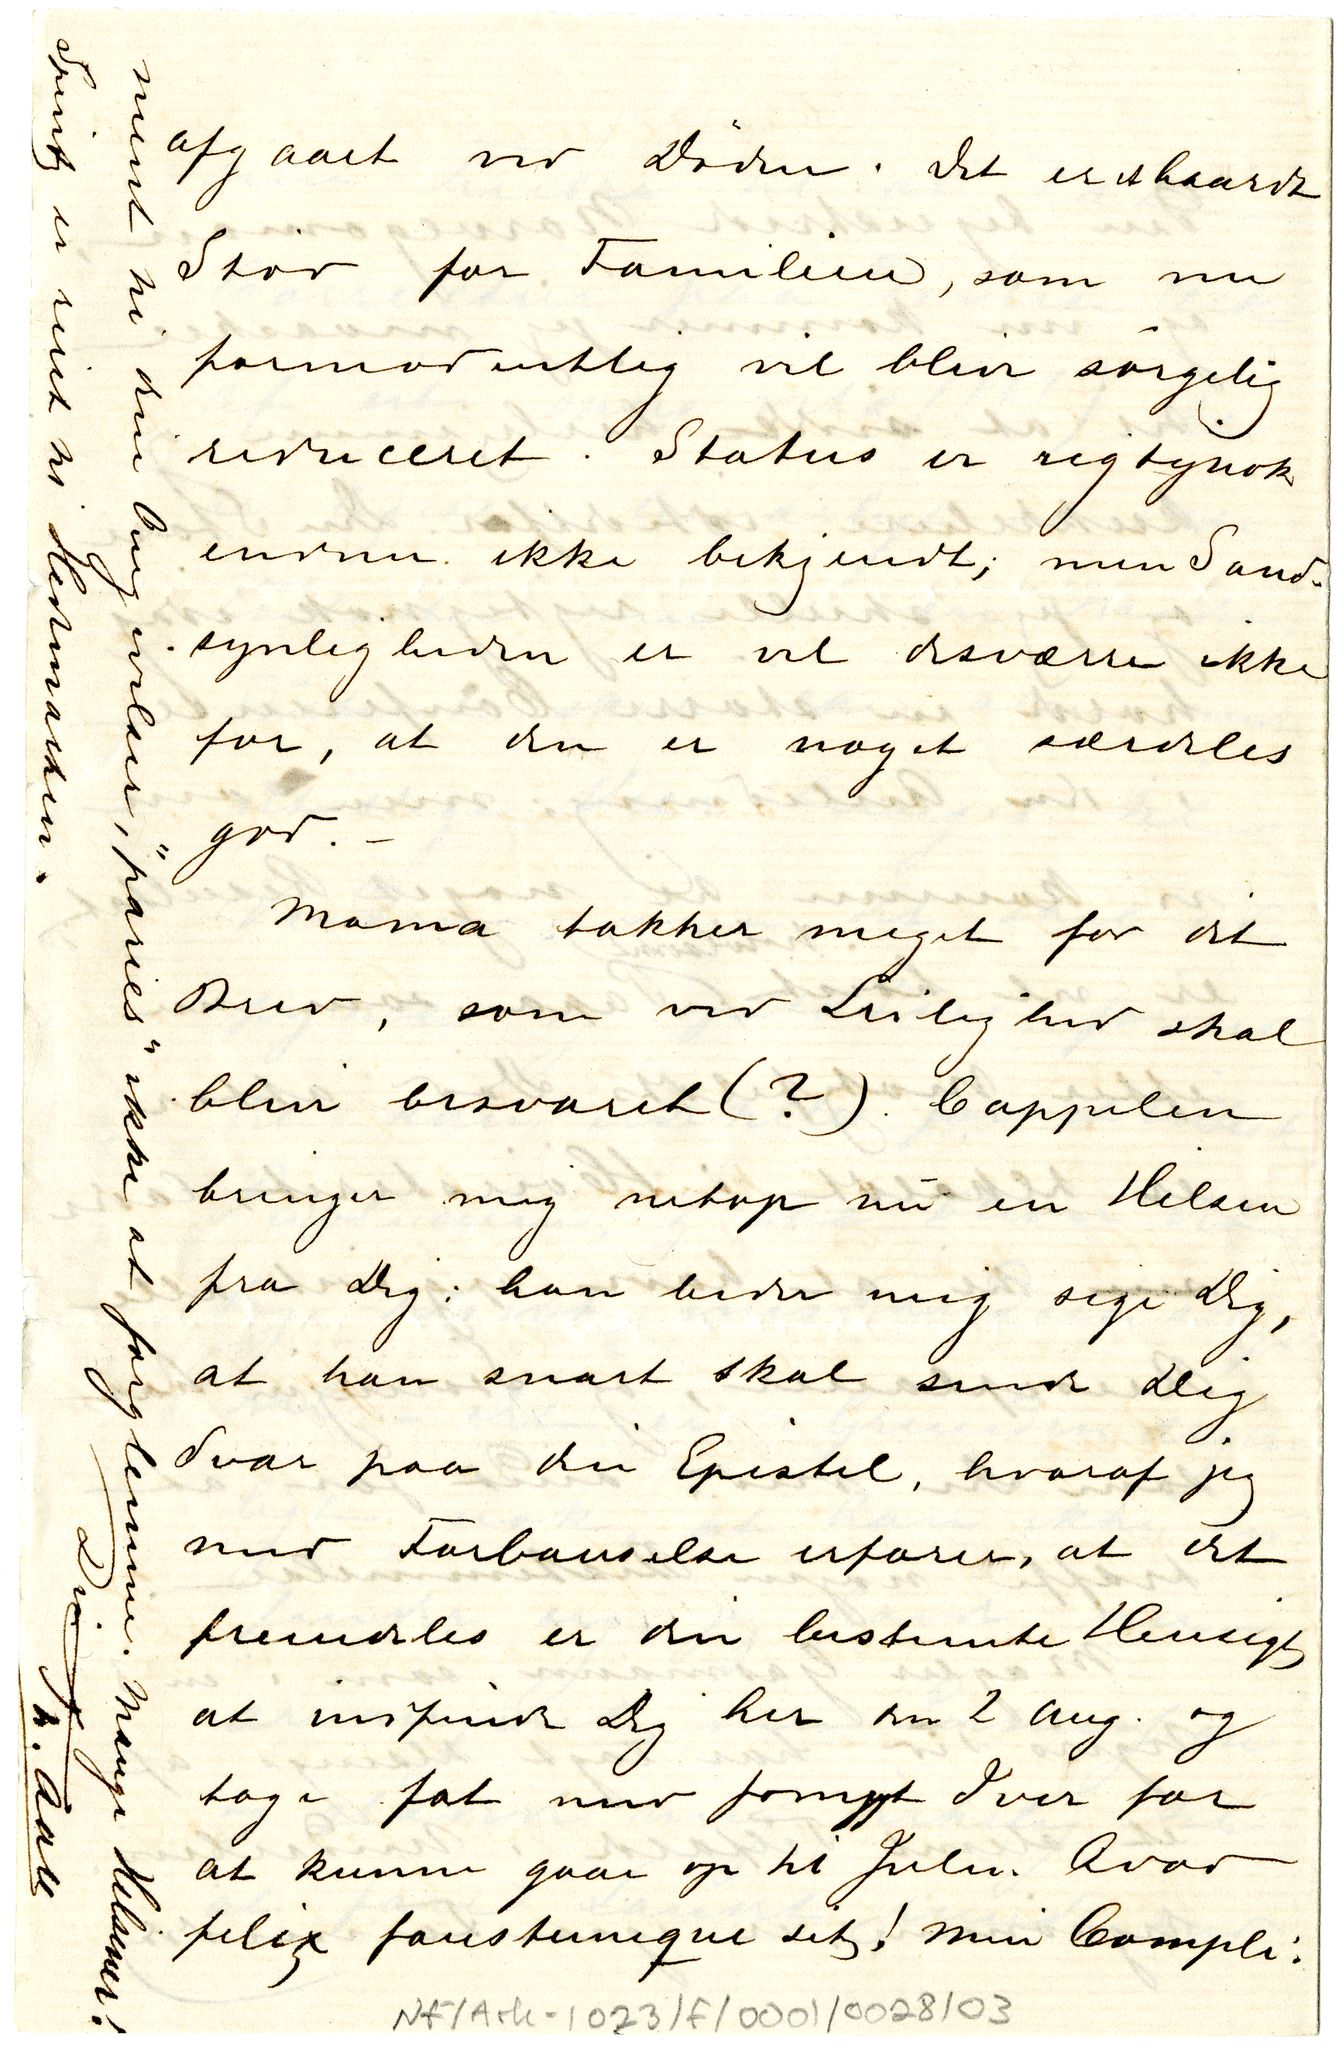 afgaaet ved Døden. Det er et haardt
Stød for Familien, som nu
formodentlig vil blive sørgelig
reduceret. Status er rigtignok
endnu ikke bekjendt; men Sand-
synligheden er vel desværre ikke
for, at den er noget særdeles
god. –
Mama takker meget for dit
Brev, som ved Leilighed skal
blive besvaret (?). Cappelen
bringer mig netop nu en Hilsen
fra Dig; han beder mig sige Dig,
at han snart skal sende Dig
Svar paa din Epistel, hvoraf jeg
med Forbauselse erfarer, at det
fremdeles er din bestemte Hensigt
at indfinde Dig her den 2 Aug. og
tage fat med Iver for
at kunne gaae op til Julen. Qvod
felix faustumque sit! Min Compli-
ment til den "paries" ikke at forglemme. Mange Hilsener!
Din
N. Aall
er reist til Hedemarken.
NF/Ark-1023/F/0001/0028/03